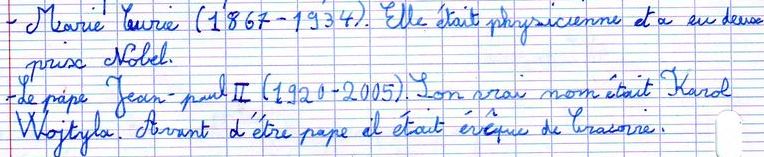 - Marie Curie (1867-1934). Elle était physicienne et a eu deux
prix Nobel.
- Le pape Jean-paul II (1920-2005). Son vrai nom était Karol
Wojtyla. Avant d'être pape il était évêque de Cracovie.